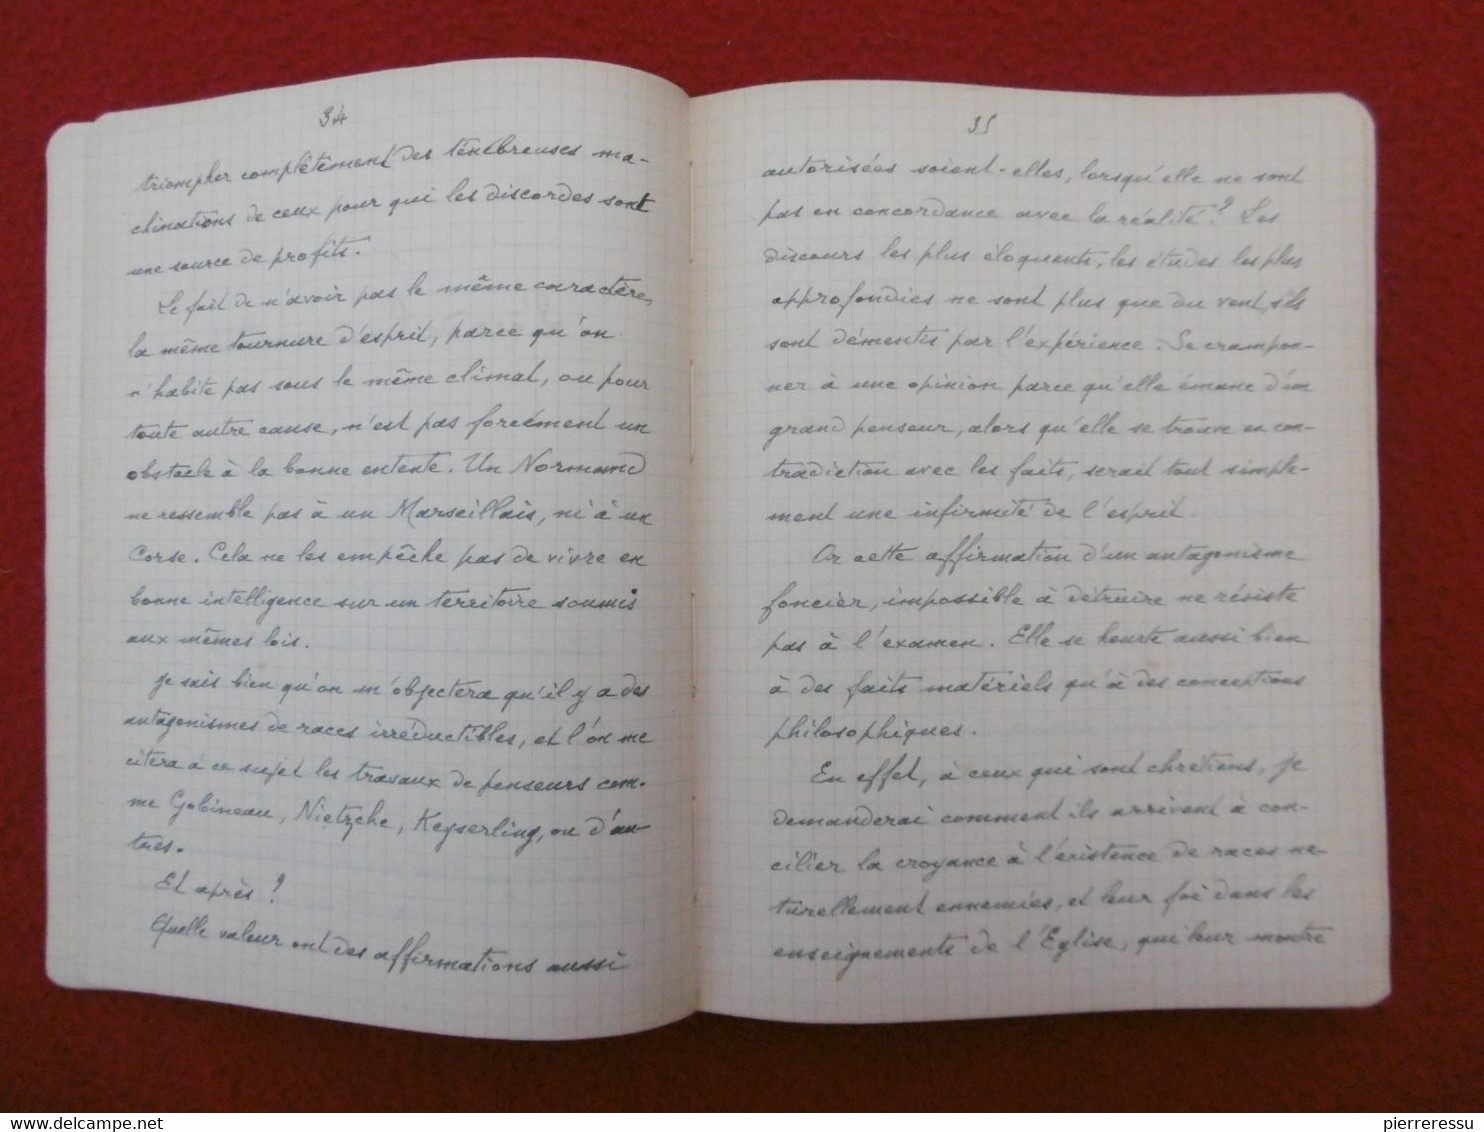 34
triompher complètement des ténébreuses ma-
chinations de ceux pour qui les discordes sont
une source de profits.
Le fait de n'avoir pas le même caractère,
la même tournure d'esprit, parce qu'on
n'habite pas sous le même climat, ou pour
toute autre cause, n'est pas forcément un
obstacle à la bonne entente. Un Normand
ne ressemble pas à un Marseillais, ni à un
Corse. Cela ne les empêche pas de vivre en
bonne intelligence sur un territoire soumis
aux mêmes lois.
Je sais bien qu'on m'objectera qu'il y a des
antagonismes de races irréductibles, et l'on me
citera à ce sujet les travaux de penseurs com-
me Gobineau, Nietzche, Keyserling, ou d'au-
tres.
Et après ?
Quelle valeur ont des affirmations aussi
35
autorisées soient-elles, lorsqu'elle ne sont
pas en concordance avec la réalité ? Les
discours les plus éloquents, les études les plus
approfondies ne sont plus que du vent, s'ils
sont démentis par l'expérience. Se crampon-
ner à une opinion parce qu'elle émane d'un
grand penseur, alors qu'elle se trouve en con-
tradiction avec les faits, serait tout simple-
ment une infirmité de l'esprit.
Or cette affirmation d'un antagonisme
foncier, impossible à détruire ne résiste
pas à l'examen. Elle se heurte aussi bien
à des faits matériels qu'à des conceptions
philosophiques.
En effet, à ceux qui sont chrétiens, je
demanderai comment ils arrivent à con-
cilier la croyance à l'existence de races na-
turellement ennemies, et leur foi dans les
enseignements de l'Eglise, qui leur montre
pierreressu